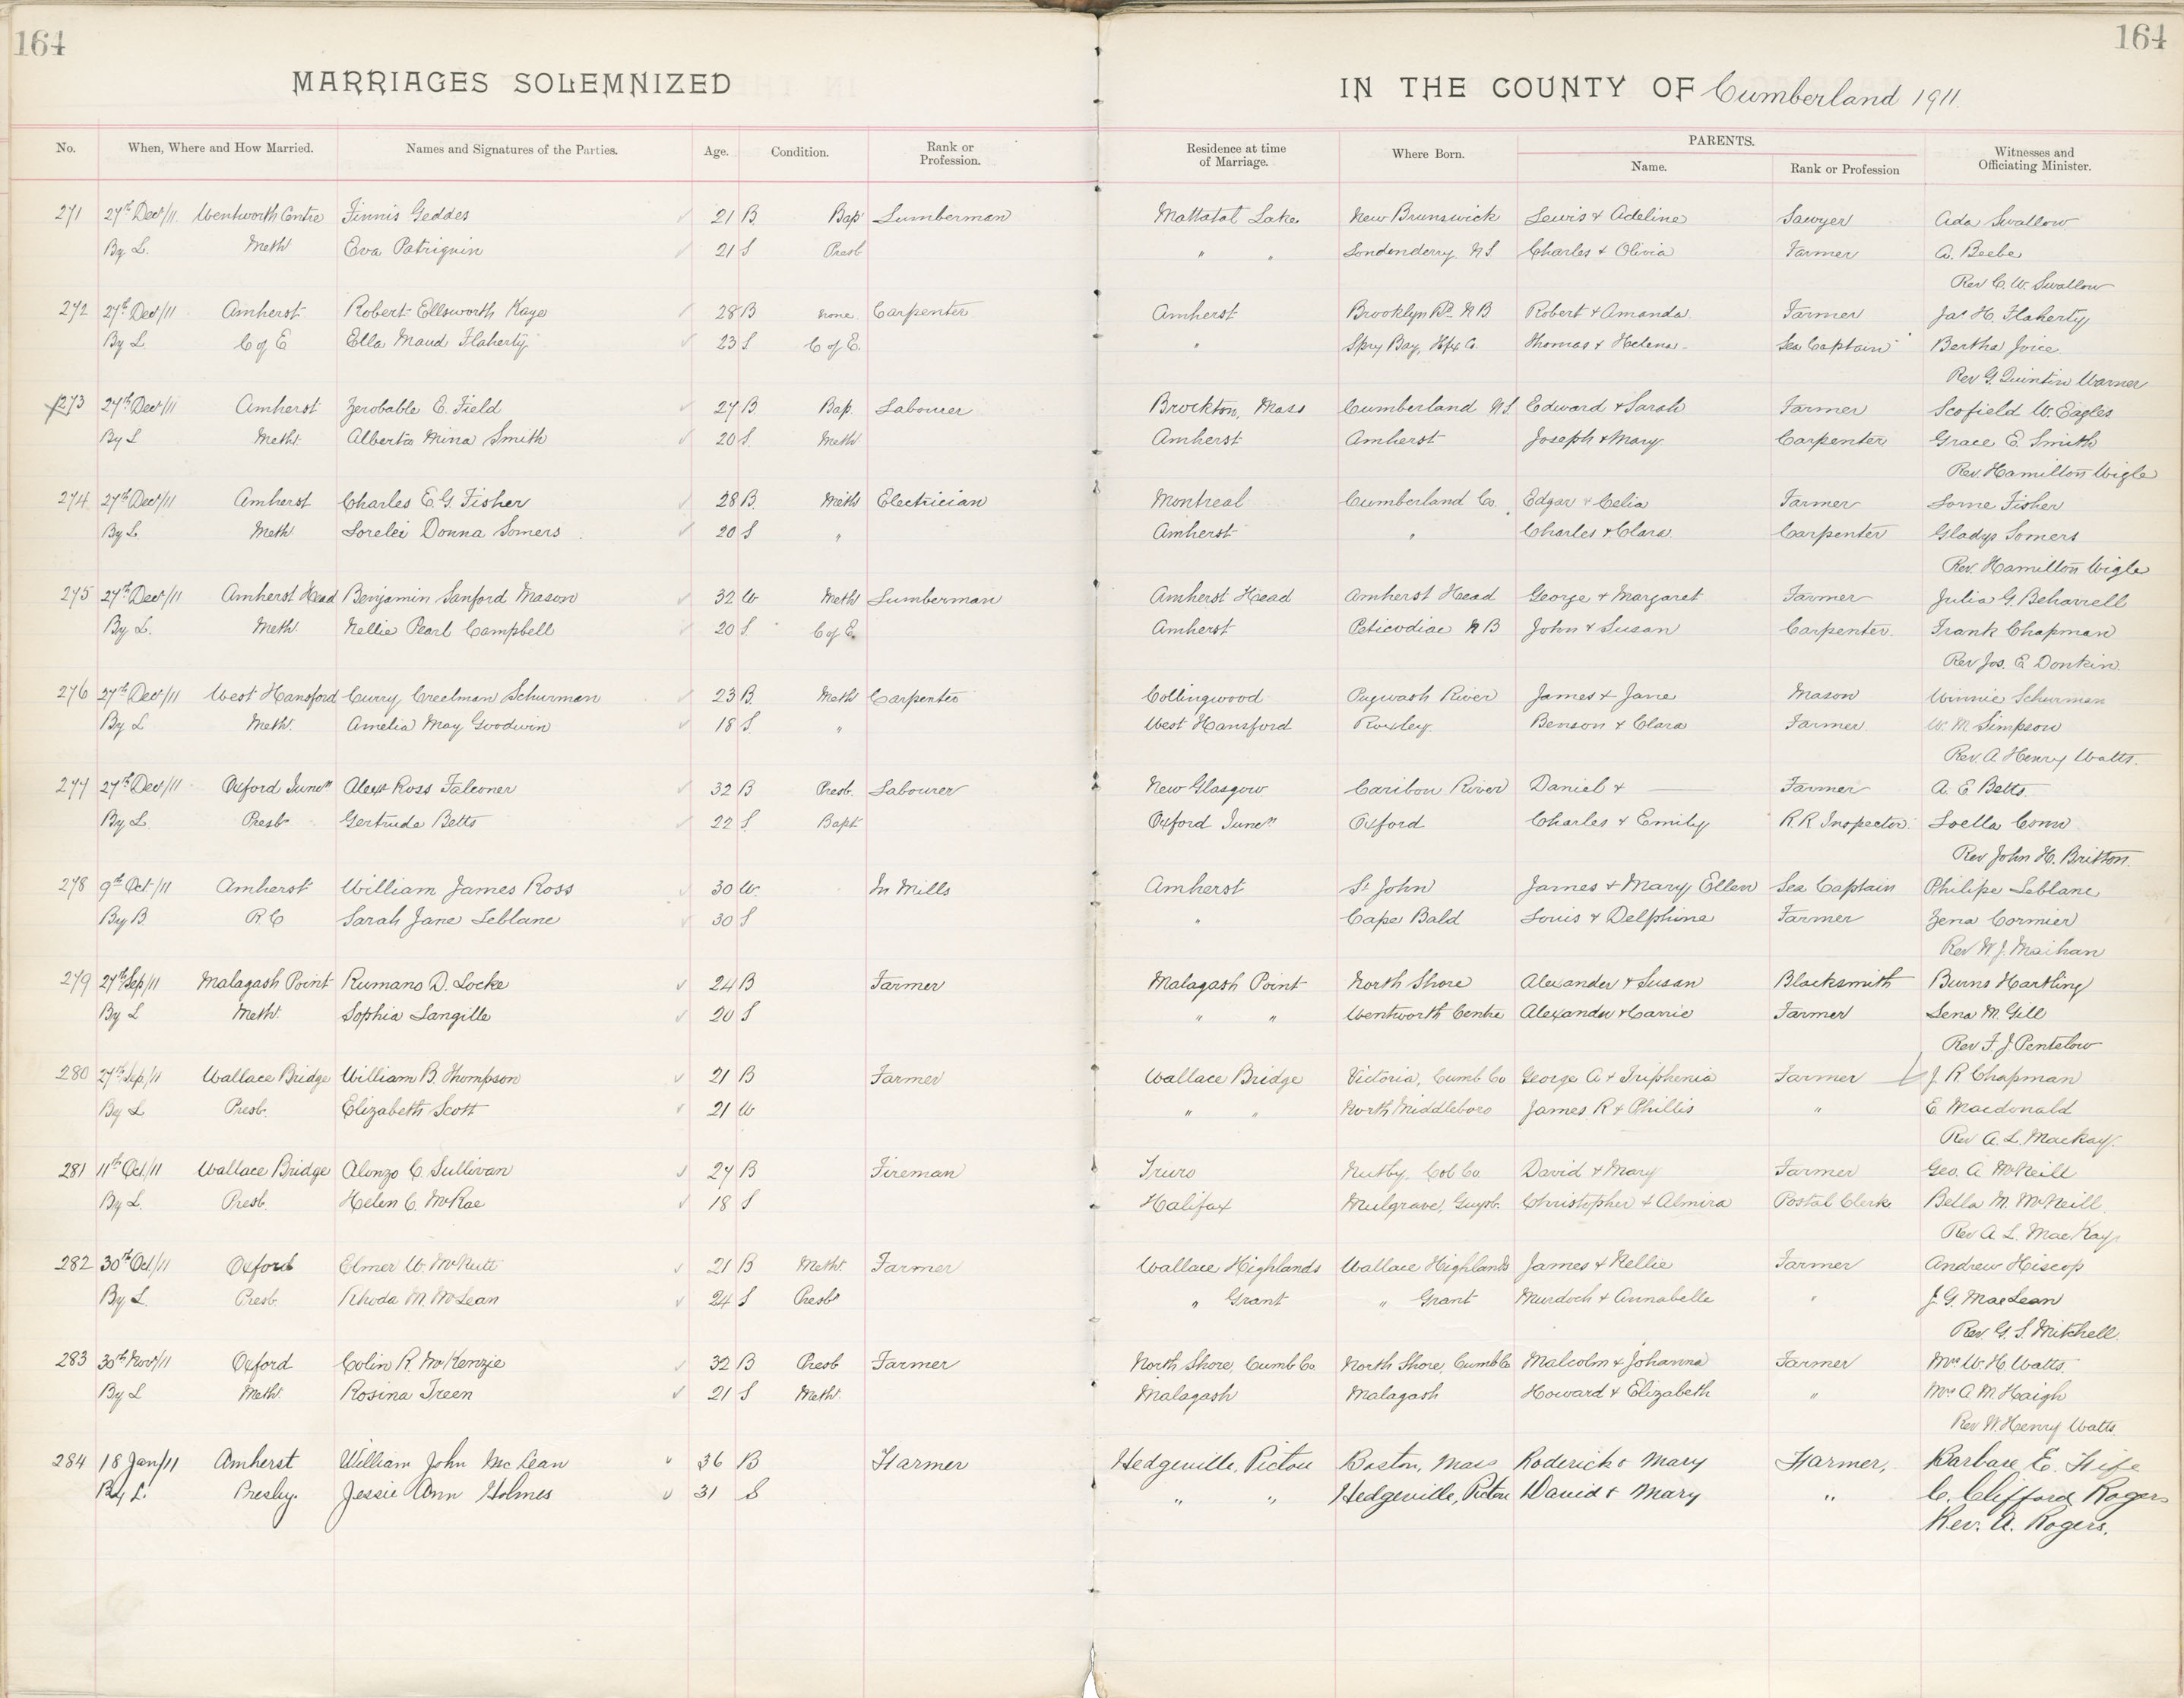 164 164
MARRIAGES SOLEMNIZED IN THE COUNTY OF Cumberland 1911.
No. When, Where and How Married. Names and Signatures of the Parties. Age. Condition. Rank or Profession. Residence at time of Marriage. Where Born. PARENTS. Name. Rank or Profession Witnesses and Officiating Minister.
271 27th Dec/11 Wentworth Centre Finnis Geddes 21 B Bap Lumberman Mattatal Lake New Brunswick Lewis & Adeline Sawyer Ada Swallow
By L. Meth Eva Patriquin 21 S Presb " " Londonderry N S Charles & Olivia Farmer A. Beebe
Rev C. W. Swallow
272 27th Dec/11 Amherst Robert Ellsworth Kaye 28 B none Carpenter Amherst Brooklyn Rd N B Robert & Amanda Farmer Jas H. Flaherty
By L C of E Ella Maud Flaherty 23 S C of E. " Spry Bay, Hfx Co. Thomas & Helena Sea Captain Bertha Joice
Rev G. Quintin Warner
273 27th Dec/11 Amherst Zerobable E. Field 27 B Bap. Labourer Brockton, Mass Cumberland N S Edward & Sarah Farmer Scofield W. Eagles
By L Meth. Alberta Mina Smith 20 S. Meth Amherst Amherst Joseph & Mary Carpenter Grace E. Smith
Rev. Hamilton Wigle
274 27th Dec/11 Amherst Charles E. G. Fisher 28 B. Meth Electrician Montreal Cumberland Co. Edgar & Celia Farmer Lorne Fisher
By L. Meth Lorelei Donna Somers 20 S " Amherst " Charles & Clara Carpenter Gladys Somers
Rev. Hamilton Wigle
275 27th Dec/11 Amherst Head Benjamin Sanford Mason 32 W Meth Lumberman Amherst Head Amherst Head George & Margaret Farmer Julia G. Beharrell
By L. Meth. Nellie Pearl Campbell 20 S. C of E Amherst Peticodiac N B John & Susan Carpenter. Frank Chapman
Rev Jos. E. Donkin
276 27th Dec/11 West Hansford Curry Creelman Schurman 23 B. Meth Carpenter Collingwood Pugwash River James & Jane Mason Winnie Schurman
By L Meth. Amelia May Goodwin 18 S. " West Hansford Roxley Benson & Clara Farmer W. M. Simpson
Rev. A Henry Watts.
277 27th Dec/11 Oxford Juncn Alext Ross Falconer 32 B Presb. Labourer New Glasgow Caribou River Daniel & — Farmer A. E. Betts
By L Presb Gertrude Betts 22 S. Bapt Oxford Juncn Oxford Charles & Emily R R Inspector Loella Conn
Rev John H. Britton.
278 9th Oct/11 Amherst William James Ross 30 W In Mills Amherst St John James & Mary Ellen Sea Captain Philipe Leblanc
By B R C Sarah Jane Leblanc 30 S " Cape Bald Louis & Delphine Farmer Zena Cormier
Rev W. J. Maihan
279 27th Sep/11 Malagash Point Rumano D. Locke 24 B Farmer Malagash Point North Shore Alexander & Susan Blacksmith Burns Hartling
By L Meth. Sophia Langille 20 S " " Wentworth Centre Alexander & Carrie Farmer Lena M. Gill
Rev F. J. Pentelow
280 27th Sep/11 Wallace Bridge William B. Thompson 21 B Farmer Wallace Bridge Victoria, Cumb Co George A & Triphenia Farmer J. R. Chapman
By L Presb. Elizabeth Scott 21 W " " North Middleboro James R & Phillis " E. Macdonald
Rev A. L. Mackay
281 11th Oct/11 Wallace Bridge Alonzo C. Sullivan 27 B Fireman Truro Nuttby, Col Co. David & Mary Farmer Geo. A McNeill
By L. Presb. Helen C. McRae 18 S Halifax Mulgrave, Guysb. Christopher & Almira Postal Clerk Bella M. McNeill
Rev A. L. MacKay
282 30th Oct/11 Oxford Elmer W. McNutt 21 B Meth. Farmer Wallace Highlands Wallace Highlands James & Nellie Farmer Andrew Hiscop
By L. Presb Rhoda M. McLean 24 S Presb " Grant " Grant Murdoch & Annabelle " J. G. MacLean
Rev. G. S. Mitchell.
283 30th Nov/11 Oxford Colin R. McKenzie 32 B Presb Farmer North Shore, Cumb Co. North Shore, Cumb Co Malcolm & Johanna Farmer Mrs W. H. Watts
By L Meth Rosina Treen 21 S Meth. Malagash Malagash Howard & Elizabeth " Mrs A. M. Haigh
Rev W. Henry Watts
284 18 Jan/11 Amherst William John McLean 36 B Farmer Hedgeville, Pictou Boston, Mass Roderick & Mary Farmer, Barbara E. Fife
By L. Presby. Jessie Ann Holmes 31 S " " Hedgeville, Pictou David & Mary " C. Clifford Rogers
Rev. A. Rogers.